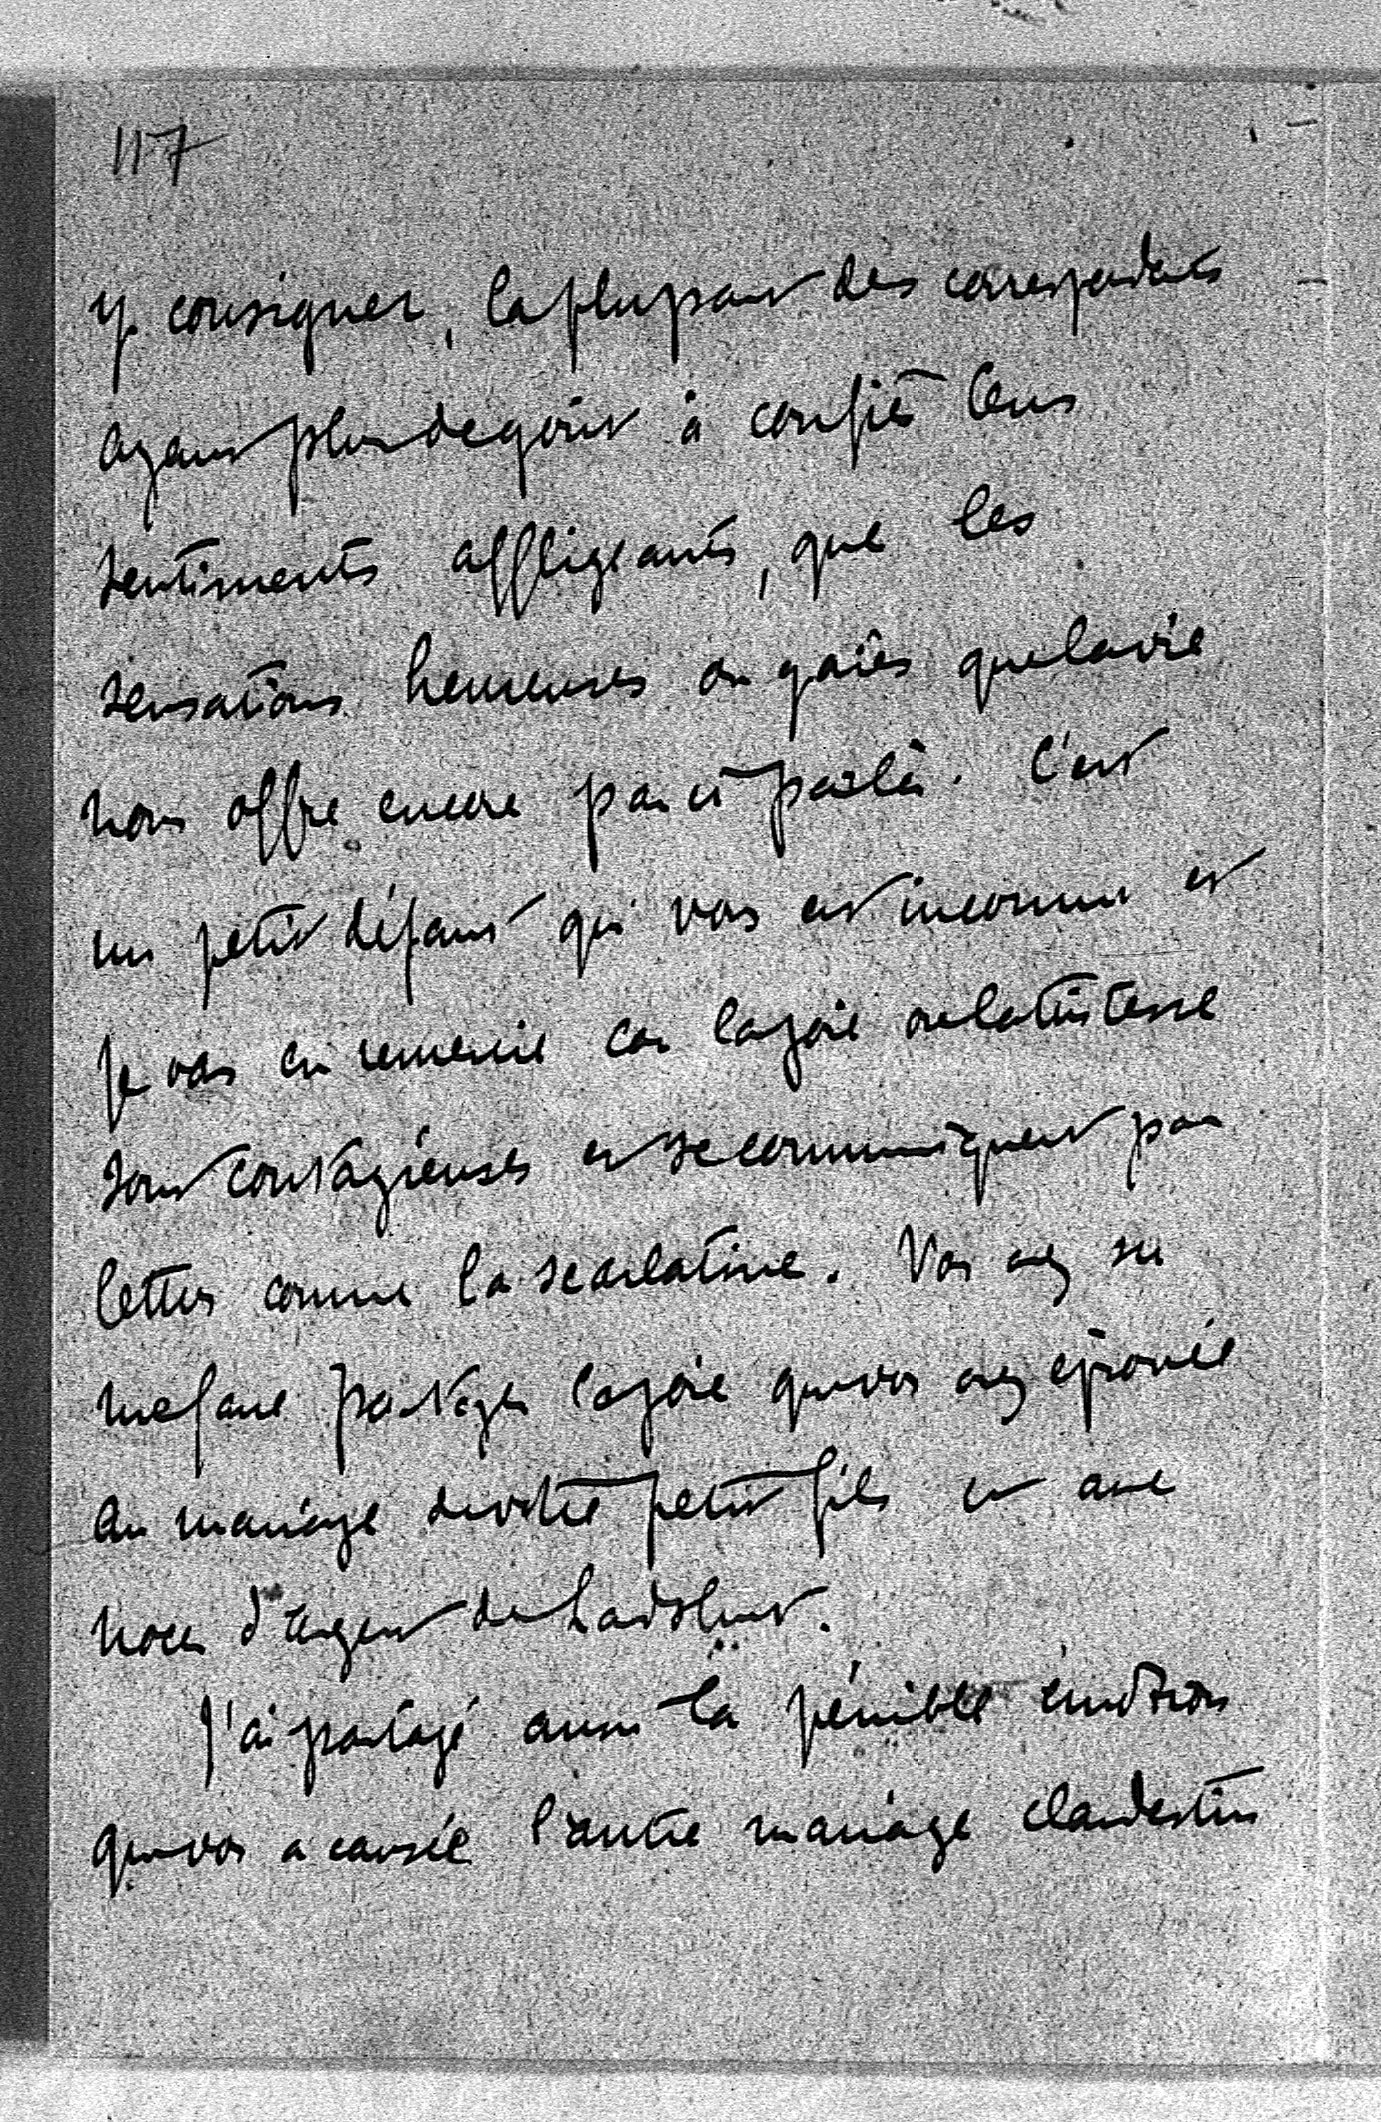 117
y consigner, la plupart des correspondants
ayant plus de goût à confier leurs
sentiments affligeants, que les
sensations heureuses ou gaies que la vie
nous offre encore par ci par là. C'est
un petit défaut qui vous est inconnu et
je vous en remercie car la joie ou la tristesse
sont contagieuses et se communiquent par
lettres comme la scarlatine. Vous avez su
me faire partager la joie que vous avez éprouvée
au mariage de votre petit fils et aux
noces d'argent de
J'ai partagé aussi la pénible émotion
que vous a causée l'autre mariage clandestin